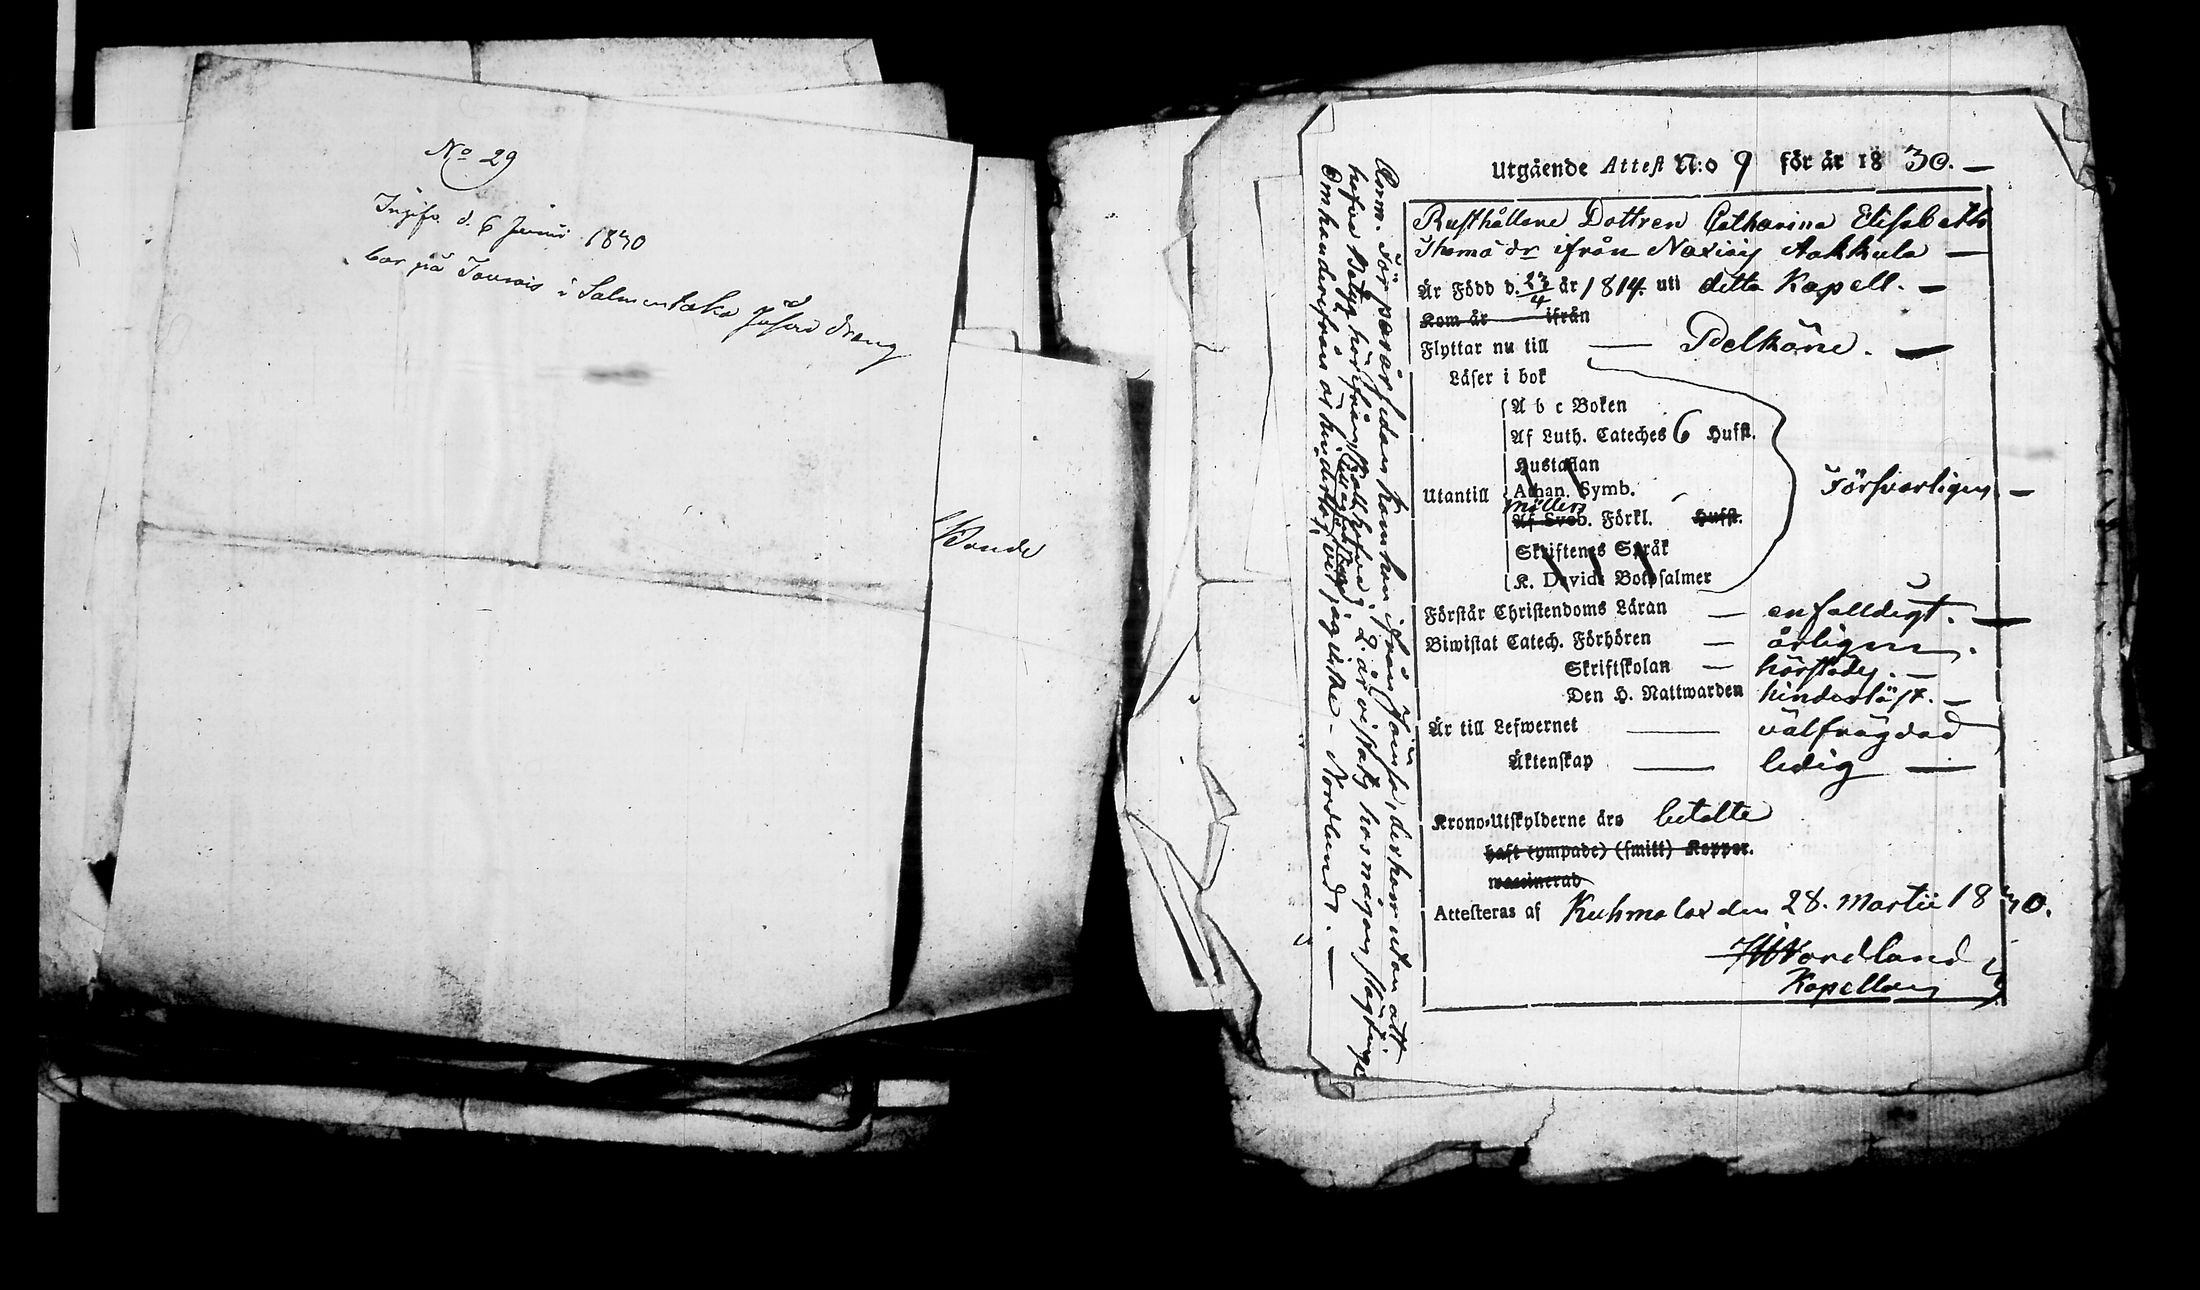 No 29
Ingifv. d. 6 Junii 1830
bor på Tourois i Salmentaka Jusas dräng
Bonde
Utgående Attest N:o 9 för år 1830.
Rusthållare Dottren Catharina Elisabeth
Thomæ dr ifrån Naxiais Aakkula
Är Född d. 23/4 år 1814. uti ditto Kapell.
Kom år ifrån
Flyttar nu till Pelkäne.
Läser i bok
A b c Boken
Af Luth. Cateches 6 Hufst.
Hustaflan
Utantill Athan. Symb.
Möllers
Af Sveb. Förkl. Hufst.
Skriftenes Språk
K. Davids Botpsalmer
Försvarligen
Förstår Christendoms Läran enfaldigt.
Biwistat Catech. Förhören årligen.
Skriftskolan härstädes.
Den H. Nattwarden hinderlöst.
Är till Lefwernet välfrägdad
Äktenskap ledig
Krono-Utskylderne äro betalte
haft (ympade) (smitt) Koppor.
waccinerad
Attesteras af Kuhmalax den 28. Martii 1830.
Nordlund
Kapellan
Anm. För par år sedan kom hon ifrån Jämsä, der hon utan att
hafva Betyg härifrån, 2. år vistats hos någon slägtinge.
Om hon derifrån är hinderslös, vet jag icke - Nordlund.